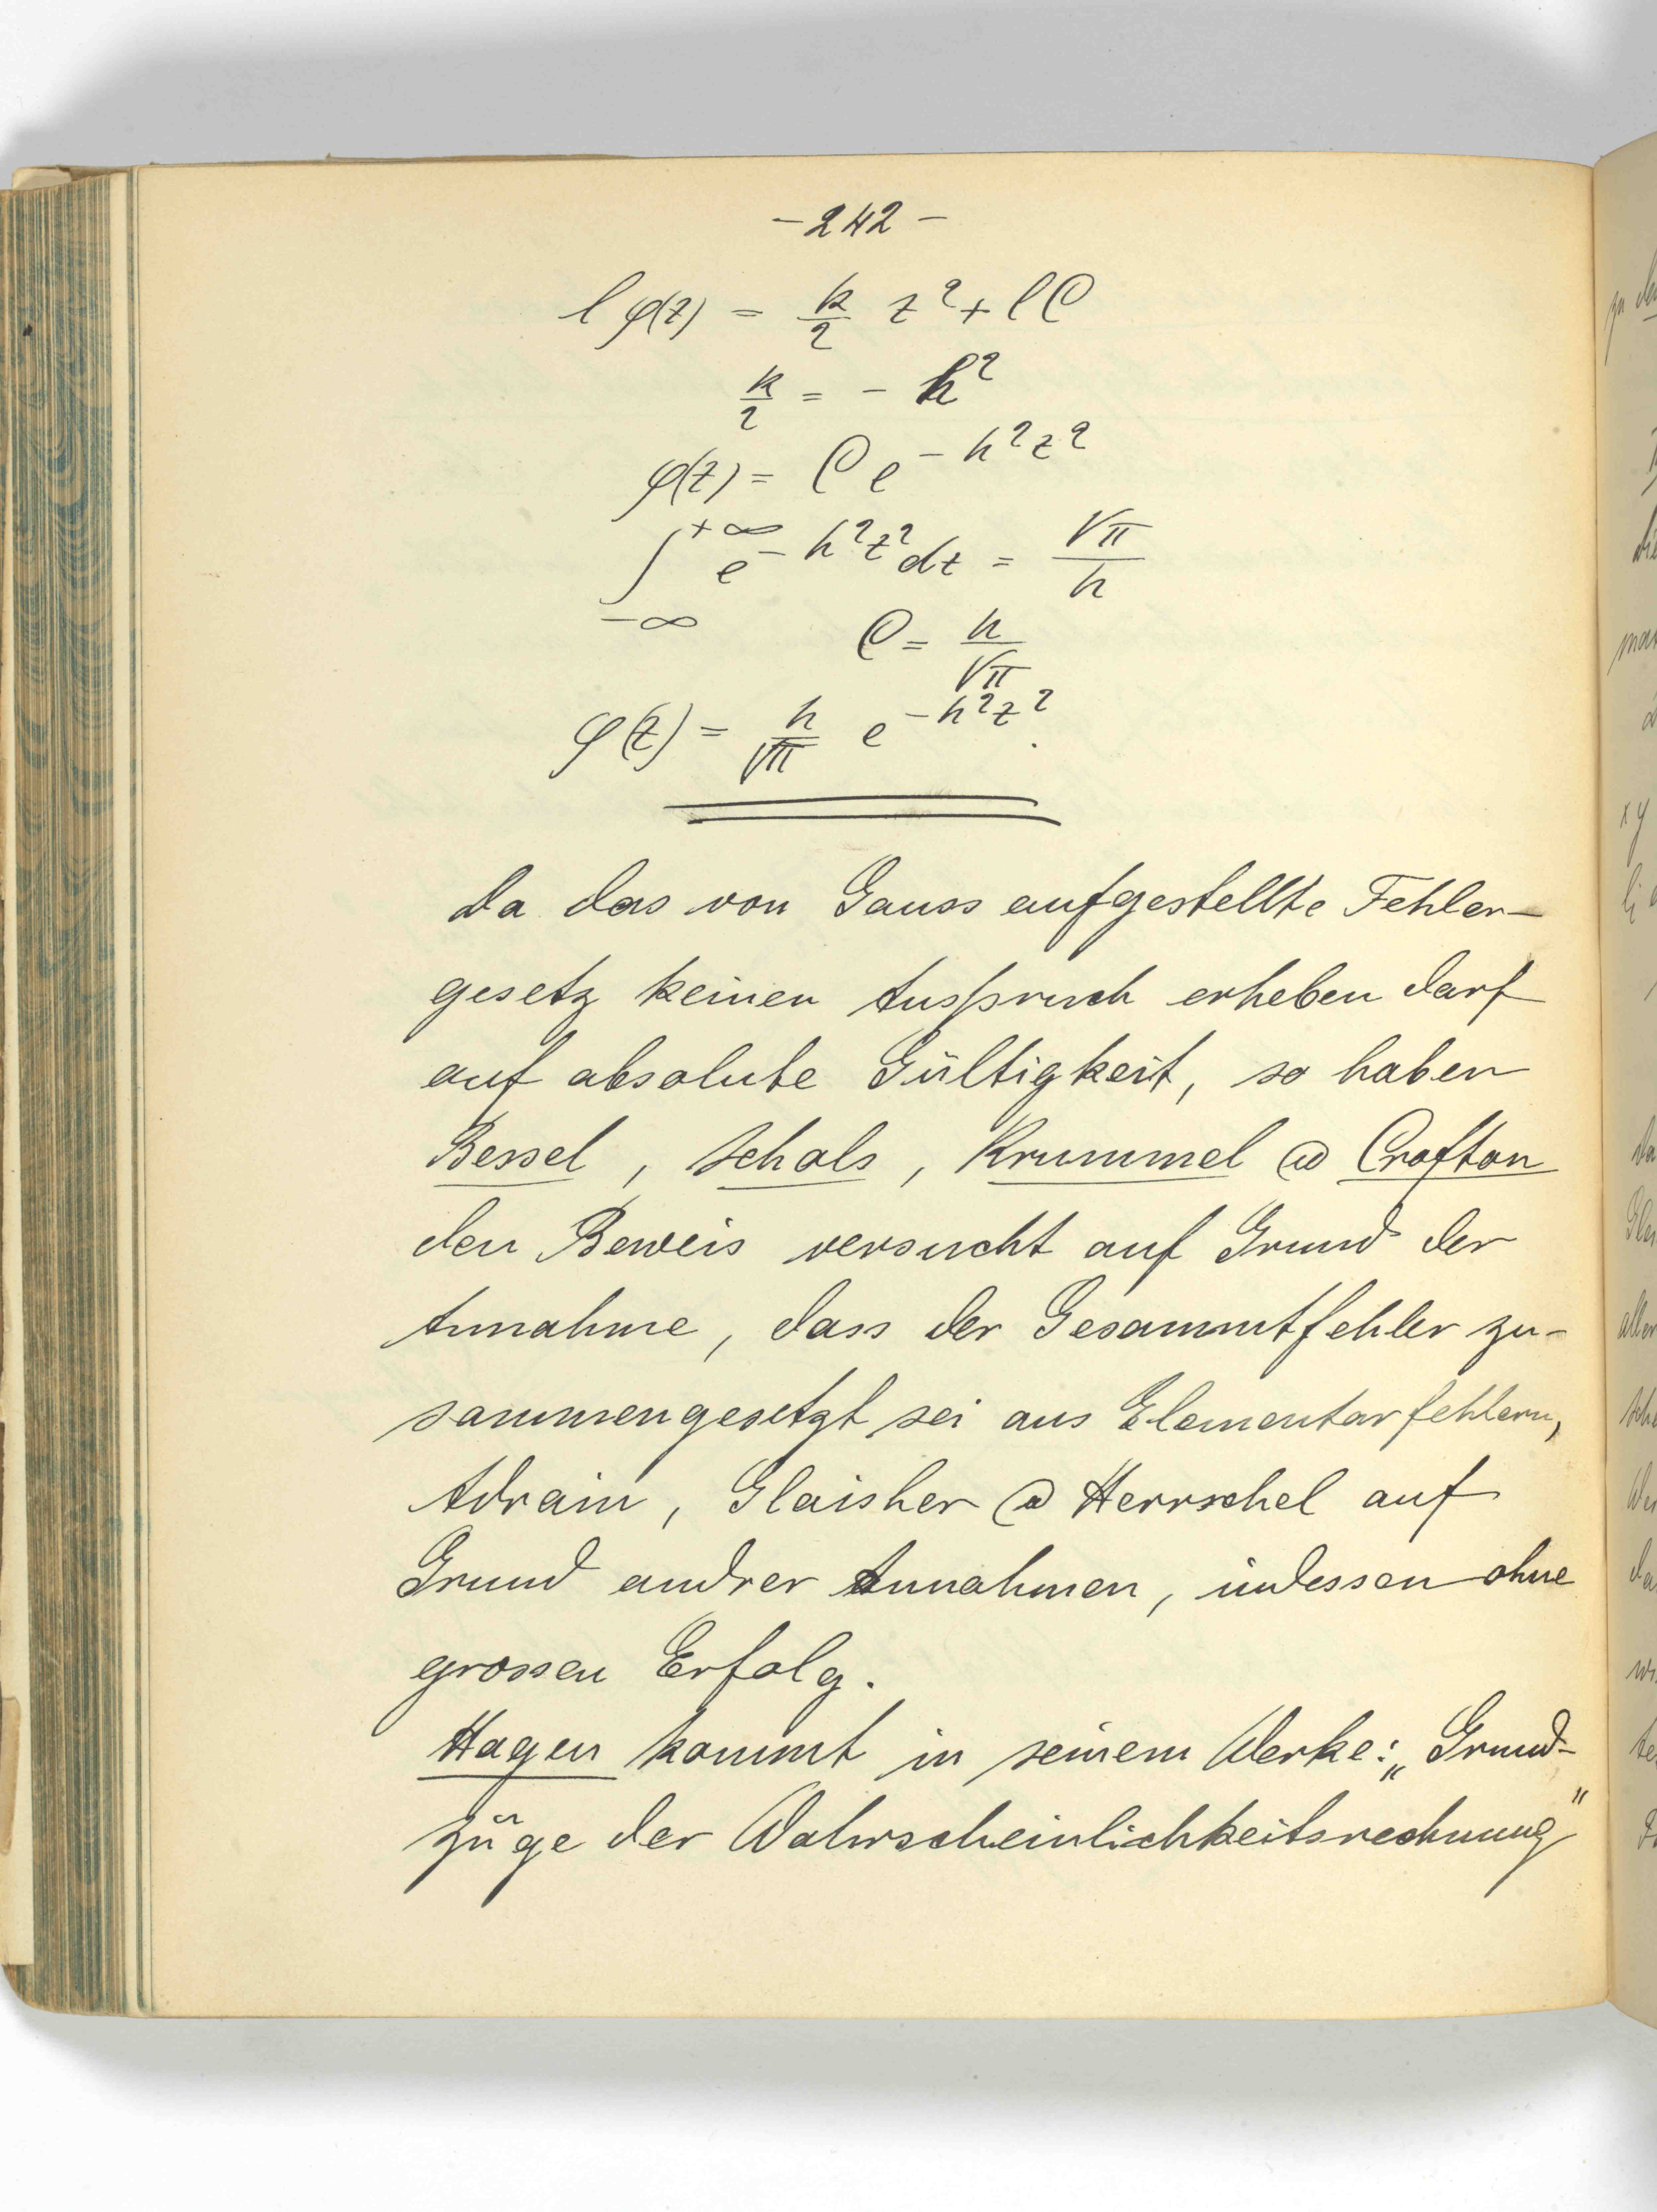 - 242 -
l φ(z) = k/2 z² + l C
k/2 = - h²
φ(z) = C e^{- h² z²}
∫_{-∞}^{+∞} e^{- h² z²} dz = √π / h
C = h / √π
φ(z) = h / √π e^{- h² z²}.
Da das von Gauss aufgestellte Fehler-
gesetz keinen Anspruch erheben darf
auf absolute Gültigkeit, so haben
Bessel, Schols, Krummel & Crofton
den Beweis versucht auf Grund der
Annahme, dass der Gesammtfehler zu-
sammengesetzt sei aus Elementarfehlern,
Adrain, Glaisher & Herrschel auf
Grund andrer Annahmen, indessen ohne
grossen Erfolg.
Hagen kommt in seinem Werke: „Grund-
züge der Wahrscheinlichkeitsrechnung"